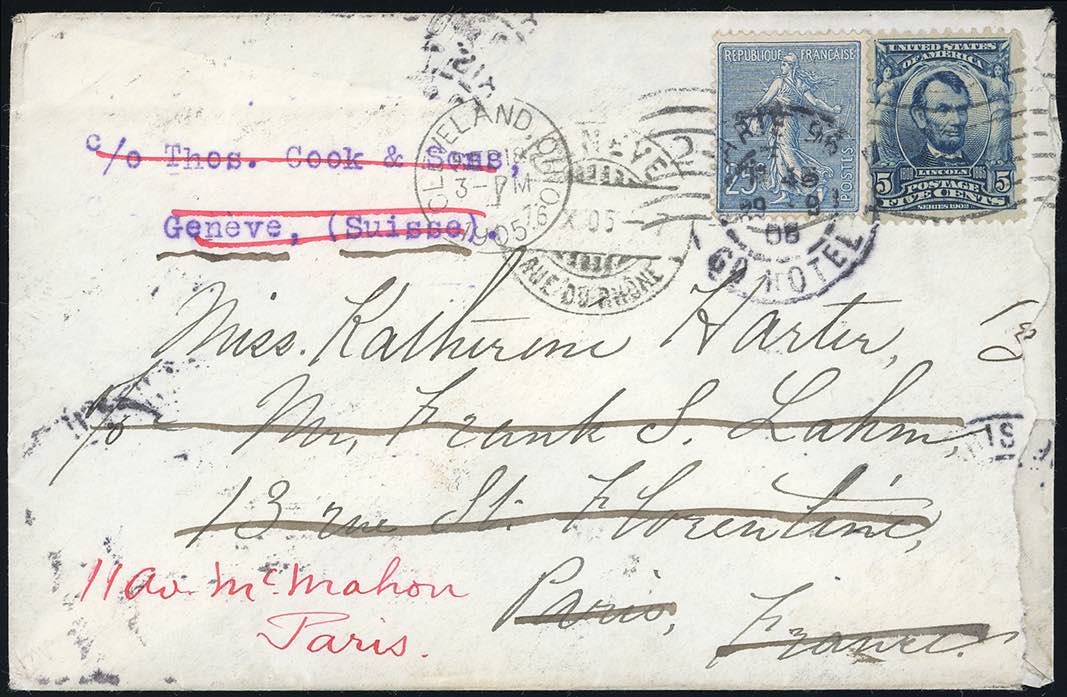 c/o Thos. Cook & Sons,
Genève, (Suisse).
CLEVELAND, OHIO
SEP 18
3-PM
1905
NEVE
16 X 05
RUE DU RHONE
REPUBLIQUE FRANÇAISE
25c
POSTES
PARIS 96
29 - 9
05
GD HOTEL
UNITED STATES
OF AMERICA
1809 LINCOLN 1865
5 POSTAGE 5
FIVE CENTS
SERIES 1902
Miss. Katherine Harter,
c/o Mr. Frank S. Lahm,
13 rue St. Florentine,
Paris,
France.
11 av. Mc.Mahon
Paris.
IS